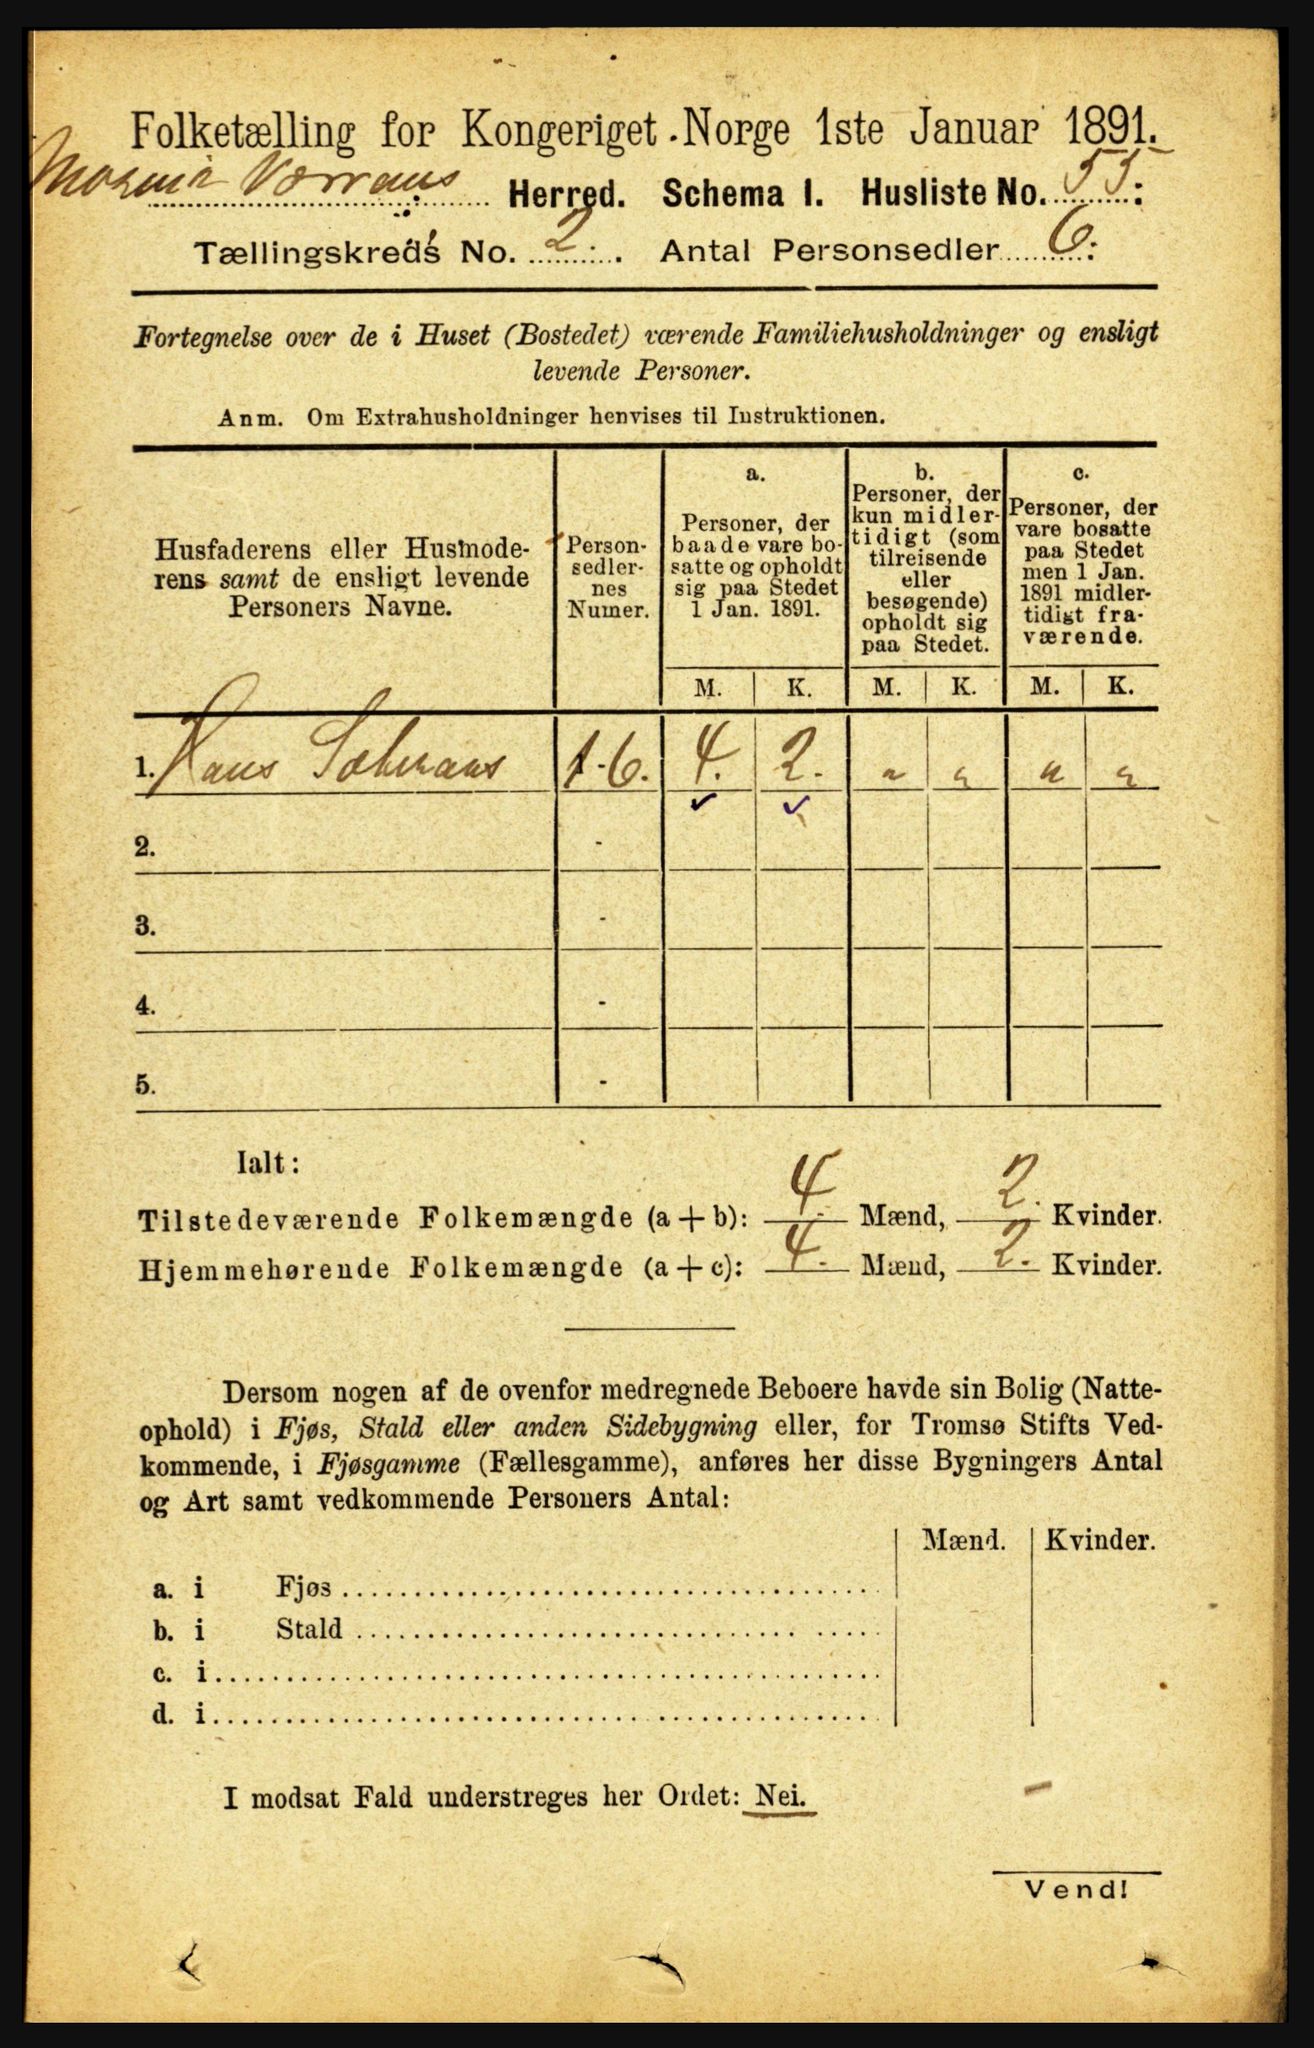 Folketælling for Kongeriget Norge 1ste Januar 1891.
Mosvik Værrans Herred. Schema 1. Husliste No. 55:
Tællingskreds No. 2. Antal Personsedler 6:
Fortegnelse over de i Huset (Bostedet) værende Familiehusholdninger og ensligt
levende Personer.
Anm. Om Extrahusholdninger henvises til Instruktionen.
Husfaderens eller Husmode-
rens samt de ensligt levende
Personers Navne.
Person-
sedler-
nes
Numer.
a.
Personer, der
baade vare bo-
satte og opholdt
sig paa Stedet
1 Jan. 1891.
b.
Personer, der
kun midler-
tidigt (som
tilreisende
eller
besøgende)
opholdt sig
paa Stedet.
c.
Personer, der
vare bosatte
paa Stedet
men 1 Jan.
1891 midler-
tidigt fra-
værende.
M. K. M. K. M. K.
1. Hans 1-6. 4. 2. " " " "
2. -
3. -
4. -
5. -
Ialt:
Tilstedeværende Folkemængde (a + b): 4. Mænd, 2. Kvinder.
Hjemmehørende Folkemængde (a + c): 4. Mænd, 2. Kvinder.
Dersom nogen af de ovenfor medregnede Beboere havde sin Bolig (Natte-
ophold) i Fjøs, Stald eller anden Sidebygning eller, for Tromsø Stifts Ved-
kommende, i Fjøsgamme (Fællesgamme), anføres her disse Bygningers Antal
og Art samt vedkommende Personers Antal:
Mænd. Kvinder.
a. i Fjøs
b. i Stald
c. i
d. i
I modsat Fald understreges her Ordet: Nei.
Vend!